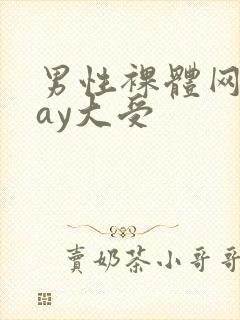 男性裸體网
ay大受
賣奶茶小哥哥